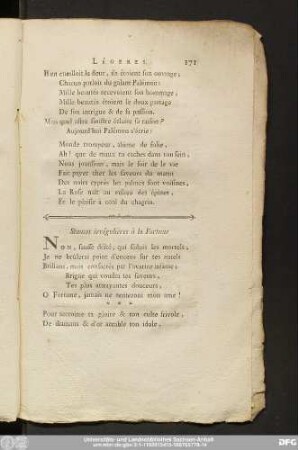 LÉGERES. 171
Il en cueilloit la fleur, ils étoient son ouvrage;
Chacun parloit du galant Palémon:
Mille beautés recevoient son hommage;
Mille beautés étoient le doux partage
De son intrigue & de sa passion.
Mais quel affreux sinistre éclaire sa raison?
Aujourd'hui Palémon s'écrie:
Monde trompeur, théme de folie,
Ah! que de maux tu caches dans ton sein,
Nous jouissons, mais le soir de la vie
Fait payer cher les faveurs du matin
Des noirs cyprès les palmes sont voisines,
La Rose naît au milieu des épines,
Et le plaisir à côté du chagrin.
Stances irrégulières à la Fortune
NON, fausse déité, qui séduis les mortels,
Je ne brûlerai point d'encens sur tes autels
Brillans, mais consacrés par l'avarice infâme:
Brigue qui voudra tes faveurs,
Tes plus attrayantes douceurs,
O Fortune, jamais ne tenteront mon ame!
* * *
Pour soutenir ta gloire & ton culte frivole,
De diamans & d'or accable ton idole,
Universitäts- und Landesbibliothek Sachsen-Anhalt
DFG